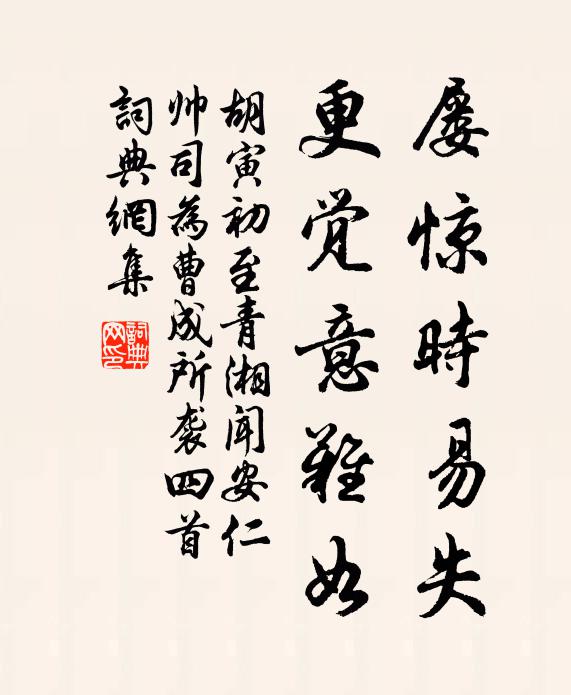 屡惊時易失
更觉意難如
胡寅初至青湘闻安仁
帅司為曹成所袭四首
詞典網集
詞典网印